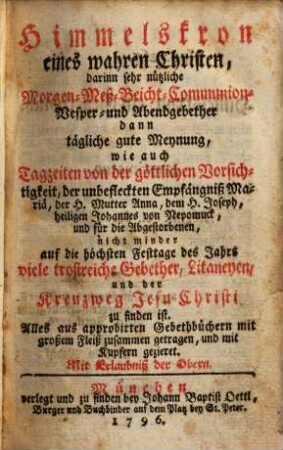 Himmelskron
eines wahren Christen,
darinn sehr nützliche
Morgen-Meß-Beicht-Communion-
Vesper- und Abendgebether
dann
tägliche gute Meynung,
wie auch
Tagzeiten von der göttlichen Vorsich-
tigkeit, der unbefleckten Empfängniß Ma-
riä, der H. Mutter Anna, dem H. Joseph,
heiligen Johannes von Nepomuck,
und für die Abgestorbenen,
nicht minder
auf die höchsten Festtage des Jahrs
viele trostreiche Gebether, Litaneyen,
und der
Kreuzweg Jesu Christi
zu finden ist.
Alles aus approbirten Gebethbüchern mit
großem Fleiß zusammen getragen, und mit
Kupfern gezieret.
Mit Erlaubniß der Obern.
München
verlegt und zu finden bey Johann Baptist Oettl,
Burger und Buchbinder auf dem Platz bey St. Peter.
1796.